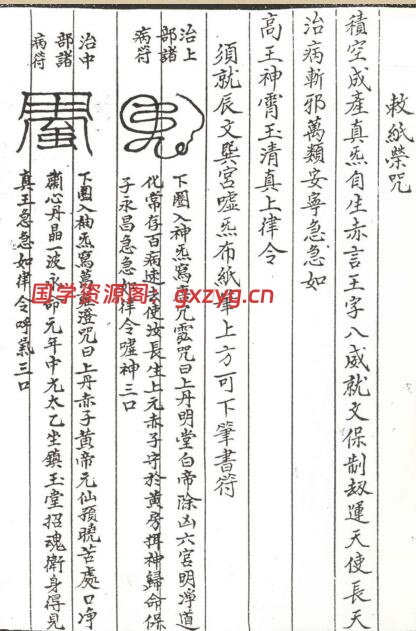 敕紙榮咒
積空成產真炁自生赤言王字八威就文保制劫運天使長天
治病斬邪萬類安寧急急如
高王神霄玉清真上律令
須就辰文巽宮噓炁布紙筆上方可下筆書符
治上部諸病符
下圈入神炁寫
咒曰上丹明堂白帝除凶六宮明淨道
化常存百病速去使汝長生上元赤子守於黃房拜神歸命保
子永昌急急律令噓神三口
治中部諸病符
下圈入柚炁寫
澄咒曰上丹赤子黃帝元仙預曉苦處口净
肅心丹晶一波永命元年中光太乙坐鎮玉堂招魂衛身得見
真王急急如律令呼氣三口
国学资源阁：gxzyg.cn